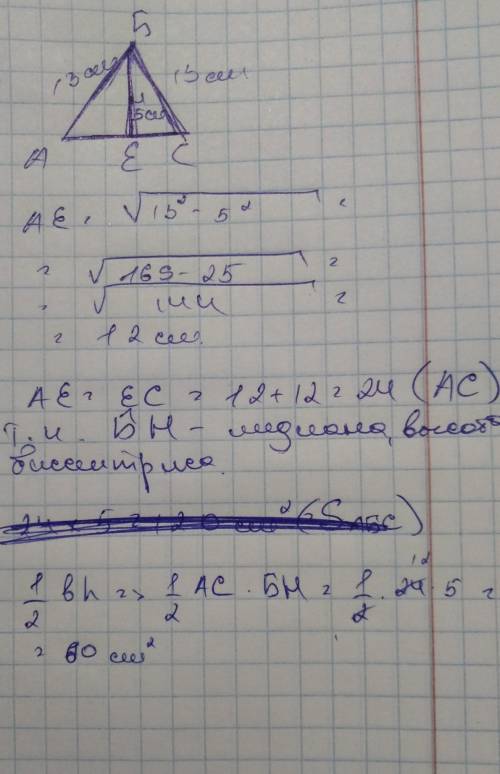 Б
13 см 13 см
5см
А Е С
АЕ = √13² - 5² =
= √169 - 25 =
= √144 =
= 12 см.
АЕ = ЕС = 12 + 12 = 24 (АС)
т.к. БН - медиана, высота
биссектриса.
24 × 5 = 120 см² (SАБС)
1/2 bh => 1/2 АС · БН = 1/2 · 24 12 · 5 =
= 60 см²